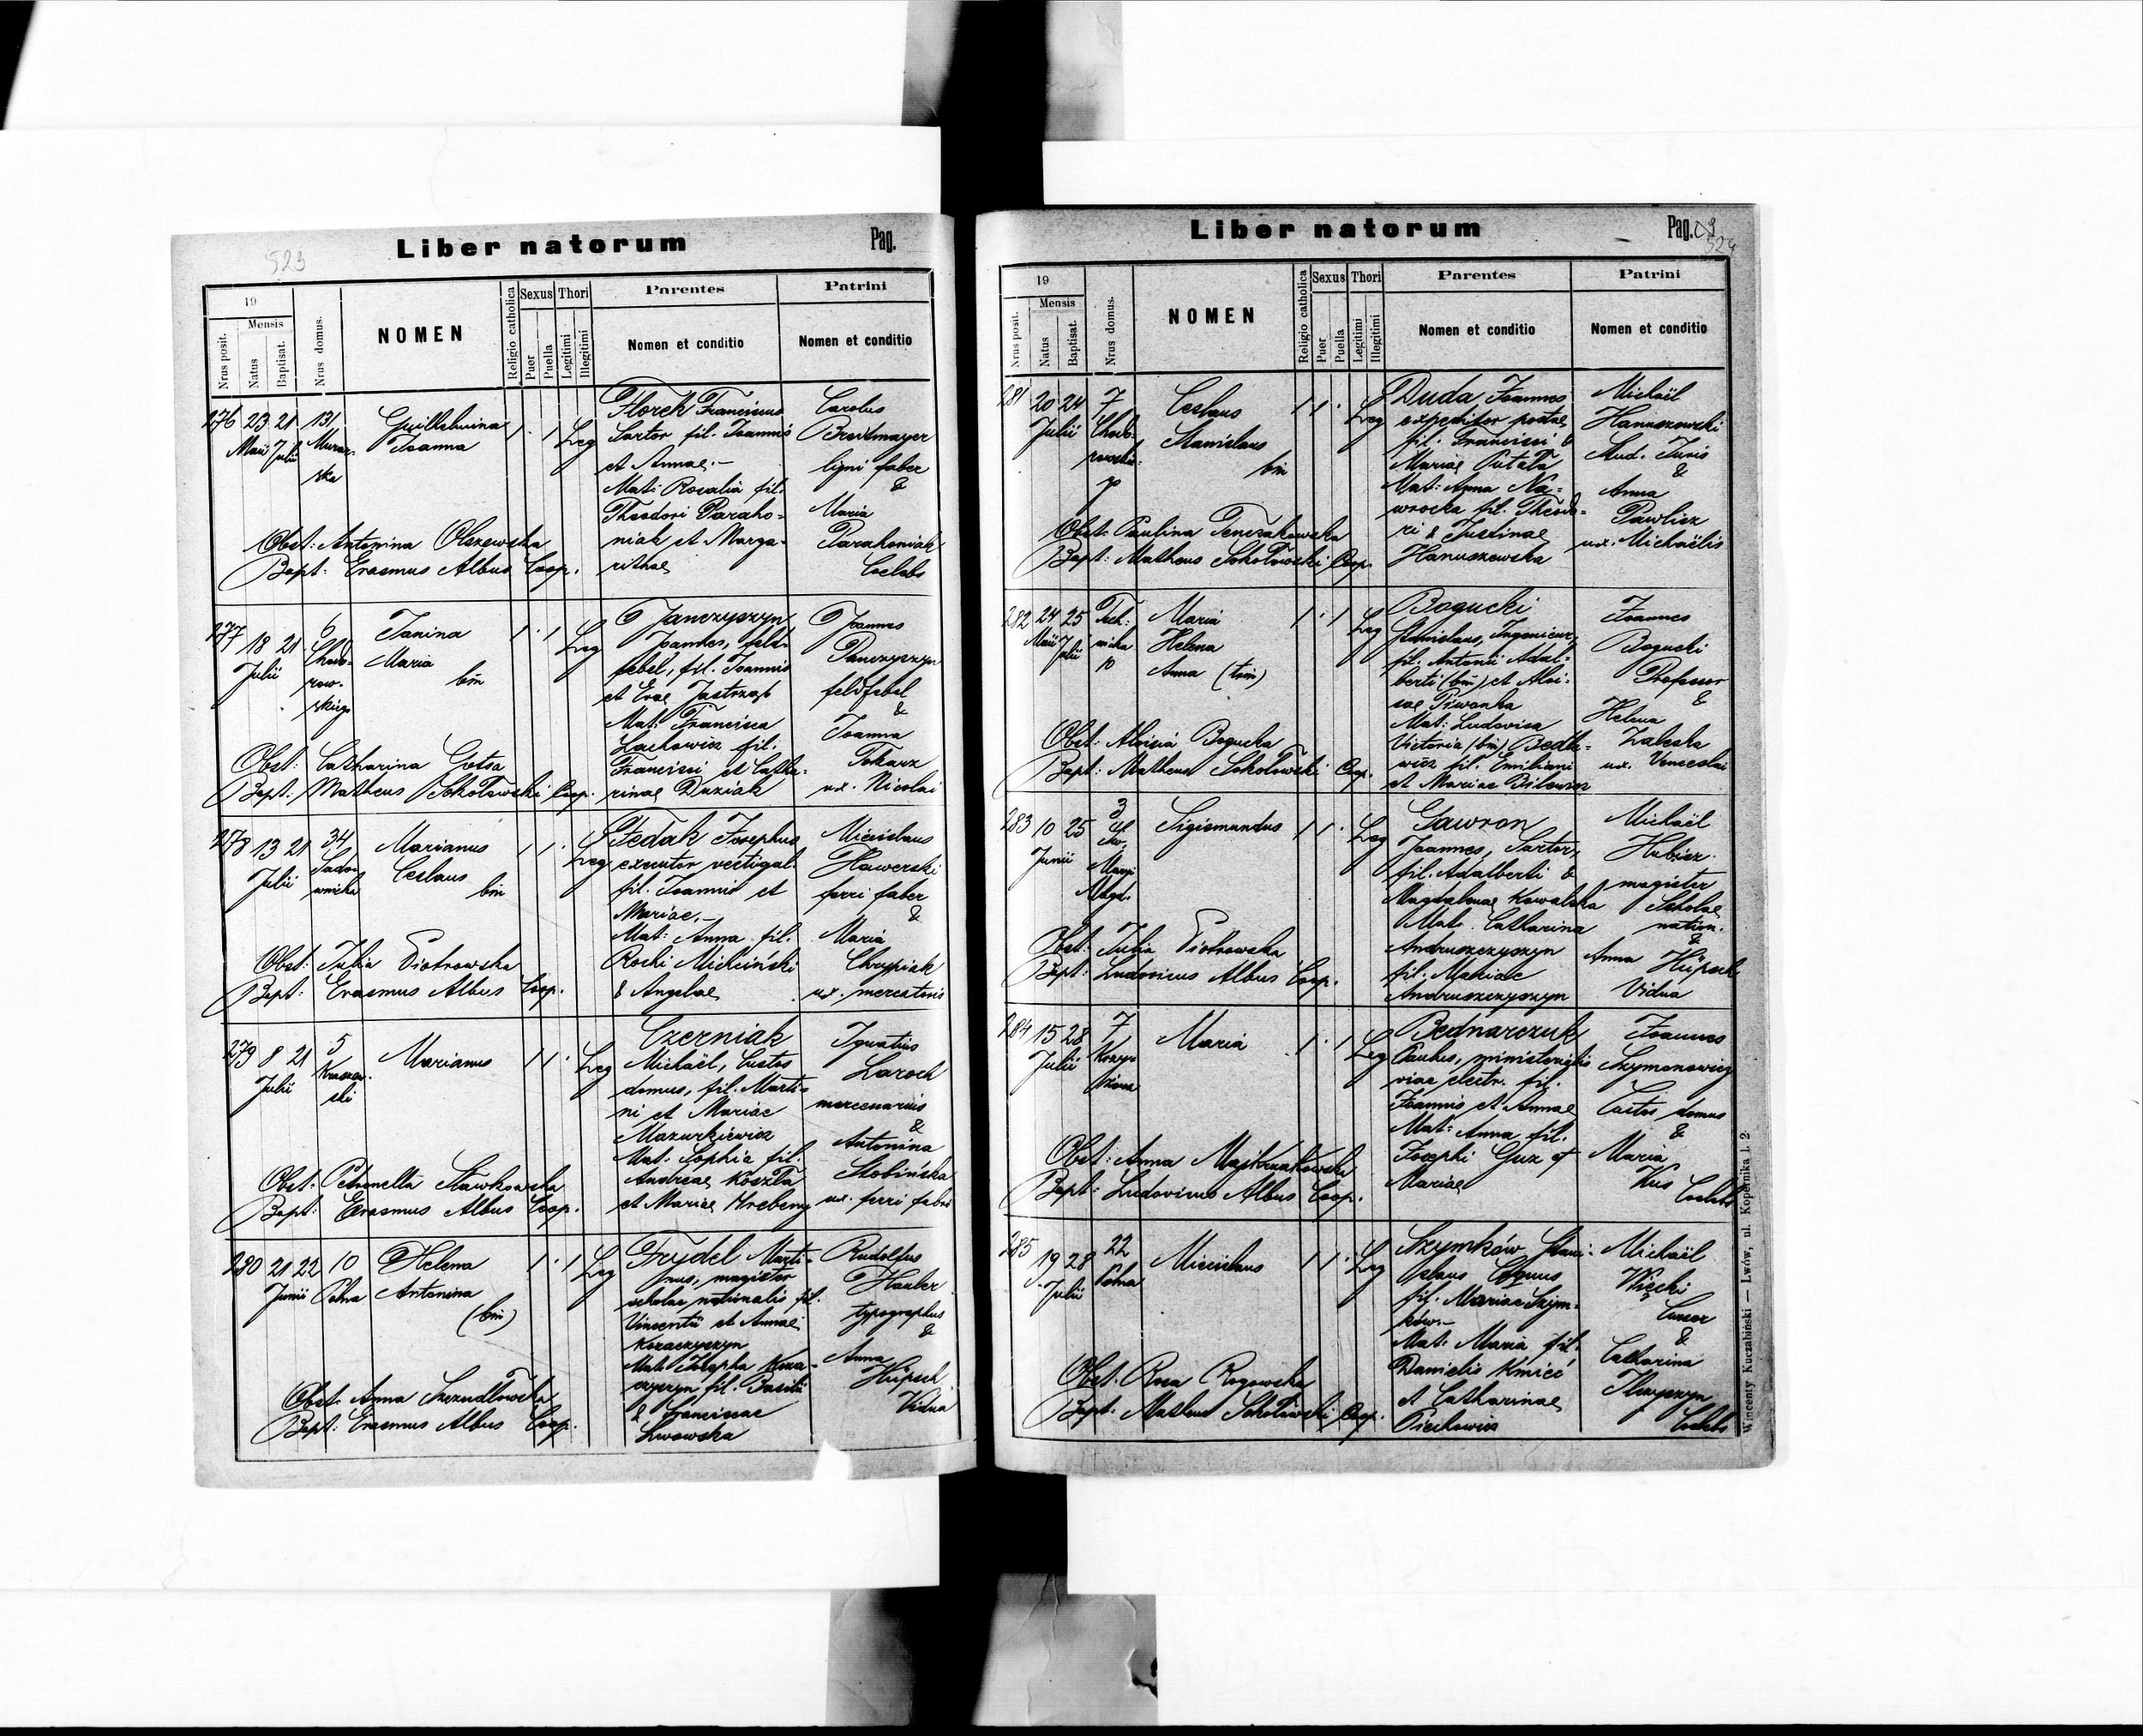 523
Liber natorum
Pag.
19
Mensis
Nrus posit.
Natus
Baptisat.
Nrus domus.
NOMEN
Religio catholica
Sexus
Puer
Puella
Thori
Legitimi
Illegitimi
Parentes
Nomen et conditio
Patrini
Nomen et conditio
276 23 21 131
Maii Julii Murar-
ska
Guillelmina
Joanna
1 1 Leg
Florek Franciscus
Sartor fil. Joannis
et Annae.-
Mat: Rosalia fil.
Theodori Paraho-
niak et Marga-
rithae
Carolus
Breitmayer
ligni faber
&
Maria
Parahoniak
Coelebs
Obst: Antonina Olszewska
Bapt: Erasmus Albus Coop.
277 18 21 6
Julii Chodo-
row-
skiego
Janina
Maria
bin
1 1 Leg
Janczyszyn
Joannes, feld-
febel, fil. Joannis
et Evae Jastrząb
Mat: Francisca
Lachowicz fil.
Francisci et Catha-
rinae Duziak
Joannes
Panczyszyn
feldfebel
&
Joanna
Tokarz
ux. Nicolai
Obst: Catharina Gotsa
Bapt: Matheus Sokołowski Coop.
278 13 21 34
Julii Sado-
wnicka
Marianus
Ceslaus
bin
1 1 Leg
Fedak Josephus
executor vectigal.
fil. Joannis et
Mariae.-
Mat: Anna fil.
Rochi Michciński
& Angelae
Miecislaus
Hawerski
ferri faber
&
Maria
Chrypiak
ux. mercatoris
Obst: Julia Piotrowska
Bapt: Erasmus Albus Coop.
279 8 21 5
Julii Kraszew-
ski
Marianus
1 1 Leg
Czerniak
Michaël, Custos
domus, fil. Marti-
ni et Mariae
Mazurkiewicz
Mat: Sophia fil.
Andreae Koszta
et Mariae Hrebeny
Ignatius
Laroch
mercenarius
&
Antonina
Skobińska
ux. ferri fabri
Obst: Petronella Sławkowska
Bapt: Erasmus Albus Coop.
280 21 22 10
Junii Polna
Helena
Antonina
(bin)
1 1 Leg
Frydel Marti-
nus, magister
scholae nationalis fil.
Vincentii et Annae
Kozaczyszyn
Mat: Josepha Koza-
czyszyn fil. Basilii
& Franciscae
Lwowska
Rudolfus
Hauler
typographus
&
Anna
Hüpsch
Vidua
Obst: Anna Szczudłowska
Bapt: Erasmus Albus Coop.
Liber natorum
Pag.
524
19
Mensis
Nrus posit.
Natus
Baptisat.
Nrus domus.
NOMEN
Religio catholica
Sexus
Puer
Puella
Thori
Legitimi
Illegitimi
Parentes
Nomen et conditio
Patrini
Nomen et conditio
281 20 24 7
Julii Chodo-
rowskie-
go
Ceslaus
Stanislaus
bin
1 1 Leg
Duda Joannes
expeditor postae
fil. Francisci &
Mariae Putała
Mat: Anna Na-
wrocka fil. Theodo-
ri & Justinae
Hanuszewska
Michaël
Hanuszewski
Stud. Juris
&
Anna
Pawlicz
ux. Michaëlis
Obst: Paulina Tenczakowska
Bapt: Matheus Sokołowski Coop.
282 24 25 Tech-
Maii Julii nicka
10
Maria
Helena
Anna (trin)
1 1 Leg
Bogucki
Stanislaus, Ingenieur,
fil. Antonii Adal-
berti (bin) et Aloi-
sae Piwonka
Mat: Ludovica
Victoria (bin) Bedle-
wicz fil. Emiliani
et Mariae Bilewicz
Joannes
Bogucki
Professor
&
Helena
Zaleska
ux. Venceslai
Obst: Aloisia Bogucka
Bapt: Matheus Sokołowski Coop.
283 10 25 3
Junii Św.
Maryi
Magd.
Sigismundus
1 1 Leg
Gawron
Joannes, Sartor,
fil. Adalberti &
Magdalenae Kowalska
Mat: Catharina
Andruszczyszyn
fil. Mariae
Andruszczyszyn
Michaël
Hubisz
magister
Scholae
nation.
&
Anna Hüpsch
Vidua
Obst: Julia Piotrowska
Bapt: Ludovicus Albus Coop.
284 15 28 7
Julii
Maria
1 1 Leg
Bednarczuk
Paulus, ministerialis
viae electr. fil.
Joannis et Annae
Mat: Anna fil.
Josephi Guz et
Mariae
Joannes
Szymonowicz
Custos domus
&
Maria
Kus
Coelebs
Obst: Anna Majkrzakowska
Bapt: Ludovicus Albus Coop.
285 19 28 22
Julii Polna
Miecislaus
1 1 Leg
Szymków Stani-
slaus Coquus
fil. Mariae Szym-
ków.-
Mat: Maria fil.
Danielis Kmieć
et Catharinae
Piechowicz
Michaël
Więcki
Cursor
&
Catharina
Coelebs
Obst: Rosa Rogowska
Bapt: Matheus Sokołowski Coop.
Wincenty Kuczabiński — Lwów, ul. Kopernika l. 2